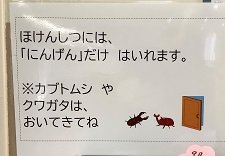 ほけんしつには、
「にんげん」だけ はいれます。
※カブトムシ や
クワガタは、
おいてきてね